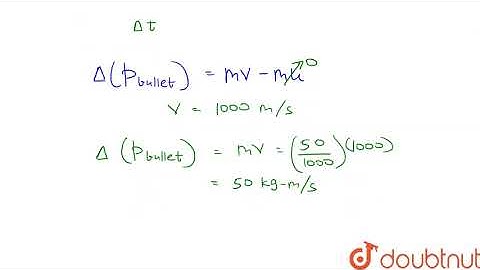 Δt
Δ(Pbullet) = mv - mu⁰
v = 1000 m/s
Δ (Pbullet) = mv = (50/1000)(1000)
= 50 kg-m/s
doubtnut